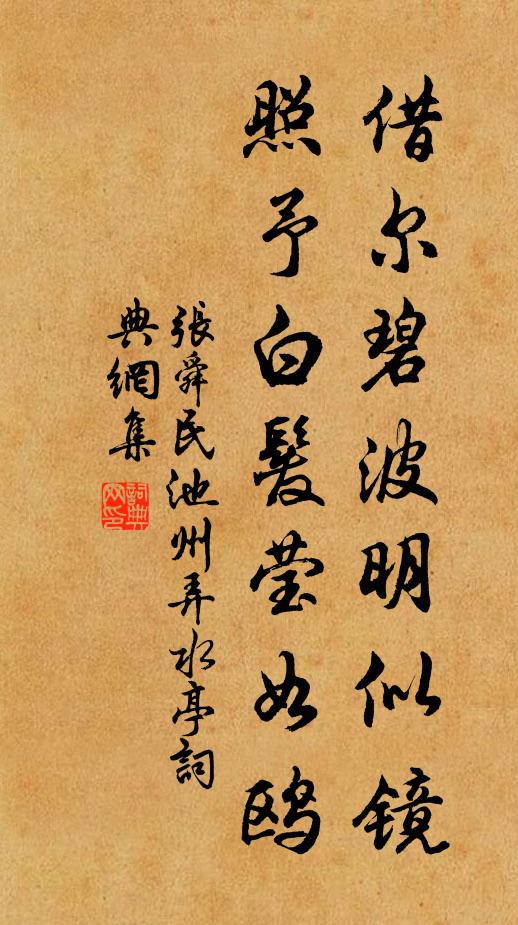 借尔碧波明似镜
照予白髮莹如鸥
張舜民池州弄水亭詞
典網集
詞典网印